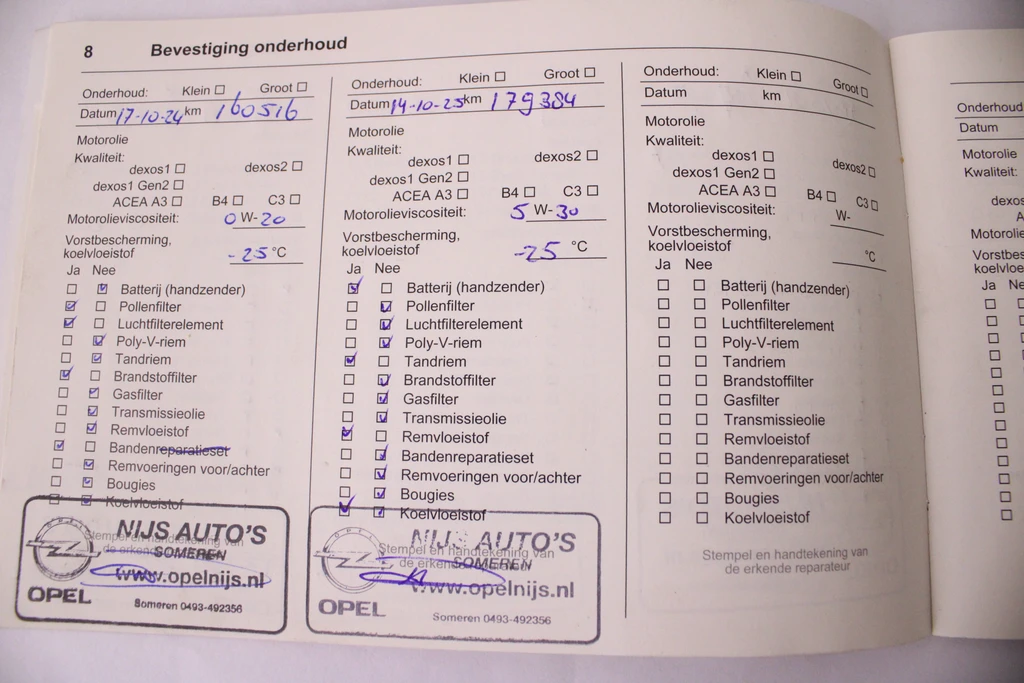 8 Bevestiging onderhoud
Onderhoud: Klein ☐ Groot ☐
Datum 17-10-24 km 160516
Motorolie
Kwaliteit:
dexos1 ☐ dexos2 ☐
dexos1 Gen2 ☐
ACEA A3 ☐ B4 ☐ C3 ☐
Motorolieviscositeit: 0 W- 20
Vorstbescherming,
koelvloeistof -25 °C
Ja Nee
☐ ☑ Batterij (handzender)
☑ ☐ Pollenfilter
☑ ☐ Luchtfilterelement
☐ ☑ Poly-V-riem
☐ ☑ Tandriem
☑ ☐ Brandstoffilter
☐ ☑ Gasfilter
☐ ☑ Transmissieolie
☐ ☑ Remvloeistof
☑ ☐ Bandenreparatieset
☐ ☑ Remvoeringen voor/achter
☐ ☑ Bougies
☐ ☑ Koelvloeistof
Stempel en handtekening van
de erkende
NIJS AUTO'S
SOMEREN
www.opelnijs.nl
OPEL
Someren 0493-492356
Onderhoud: Klein ☐ Groot ☐
Datum 14-10-25 km 179384
Motorolie
Kwaliteit:
dexos1 ☐ dexos2 ☐
dexos1 Gen2 ☐
ACEA A3 ☐ B4 ☐ C3 ☐
Motorolieviscositeit: 5 W- 30
Vorstbescherming,
koelvloeistof -25 °C
Ja Nee
☑ ☐ Batterij (handzender)
☐ ☑ Pollenfilter
☐ ☑ Luchtfilterelement
☐ ☑ Poly-V-riem
☑ ☐ Tandriem
☐ ☑ Brandstoffilter
☐ ☑ Gasfilter
☐ ☑ Transmissieolie
☑ ☐ Remvloeistof
☐ ☑ Bandenreparatieset
☐ ☑ Remvoeringen voor/achter
☐ ☑ Bougies
☑ ☑ Koelvloeistof
Stempel en handtekening van
de erkende
NIJS AUTO'S
SOMEREN
www.opelnijs.nl
OPEL
Someren 0493-492356
Onderhoud: Klein ☐ Groot ☐
Datum km
Motorolie
Kwaliteit:
dexos1 ☐ dexos2 ☐
dexos1 Gen2 ☐
ACEA A3 ☐ B4 ☐ C3 ☐
Motorolieviscositeit: W-
Vorstbescherming,
koelvloeistof °C
Ja Nee
☐ ☐ Batterij (handzender)
☐ ☐ Pollenfilter
☐ ☐ Luchtfilterelement
☐ ☐ Poly-V-riem
☐ ☐ Tandriem
☐ ☐ Brandstoffilter
☐ ☐ Gasfilter
☐ ☐ Transmissieolie
☐ ☐ Remvloeistof
☐ ☐ Bandenreparatieset
☐ ☐ Remvoeringen voor/achter
☐ ☐ Bougies
☐ ☐ Koelvloeistof
Stempel en handtekening van
de erkende reparateur
Onderhoud
Datum
Motorolie
Kwaliteit:
Ja